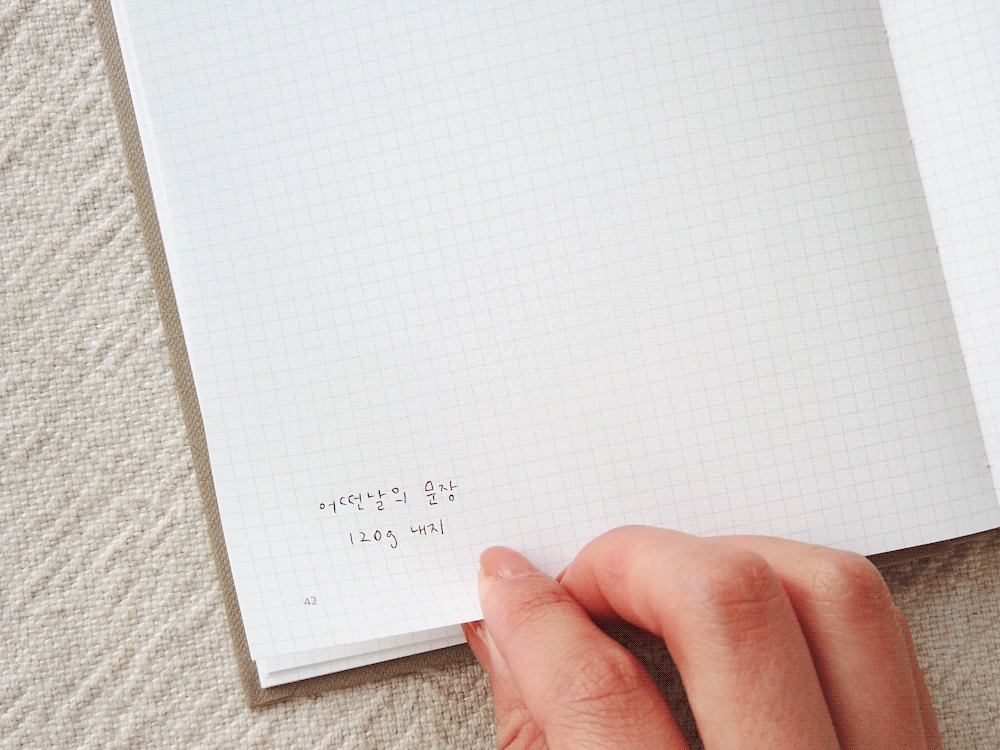 어떤날의 문장
120g 내지
42